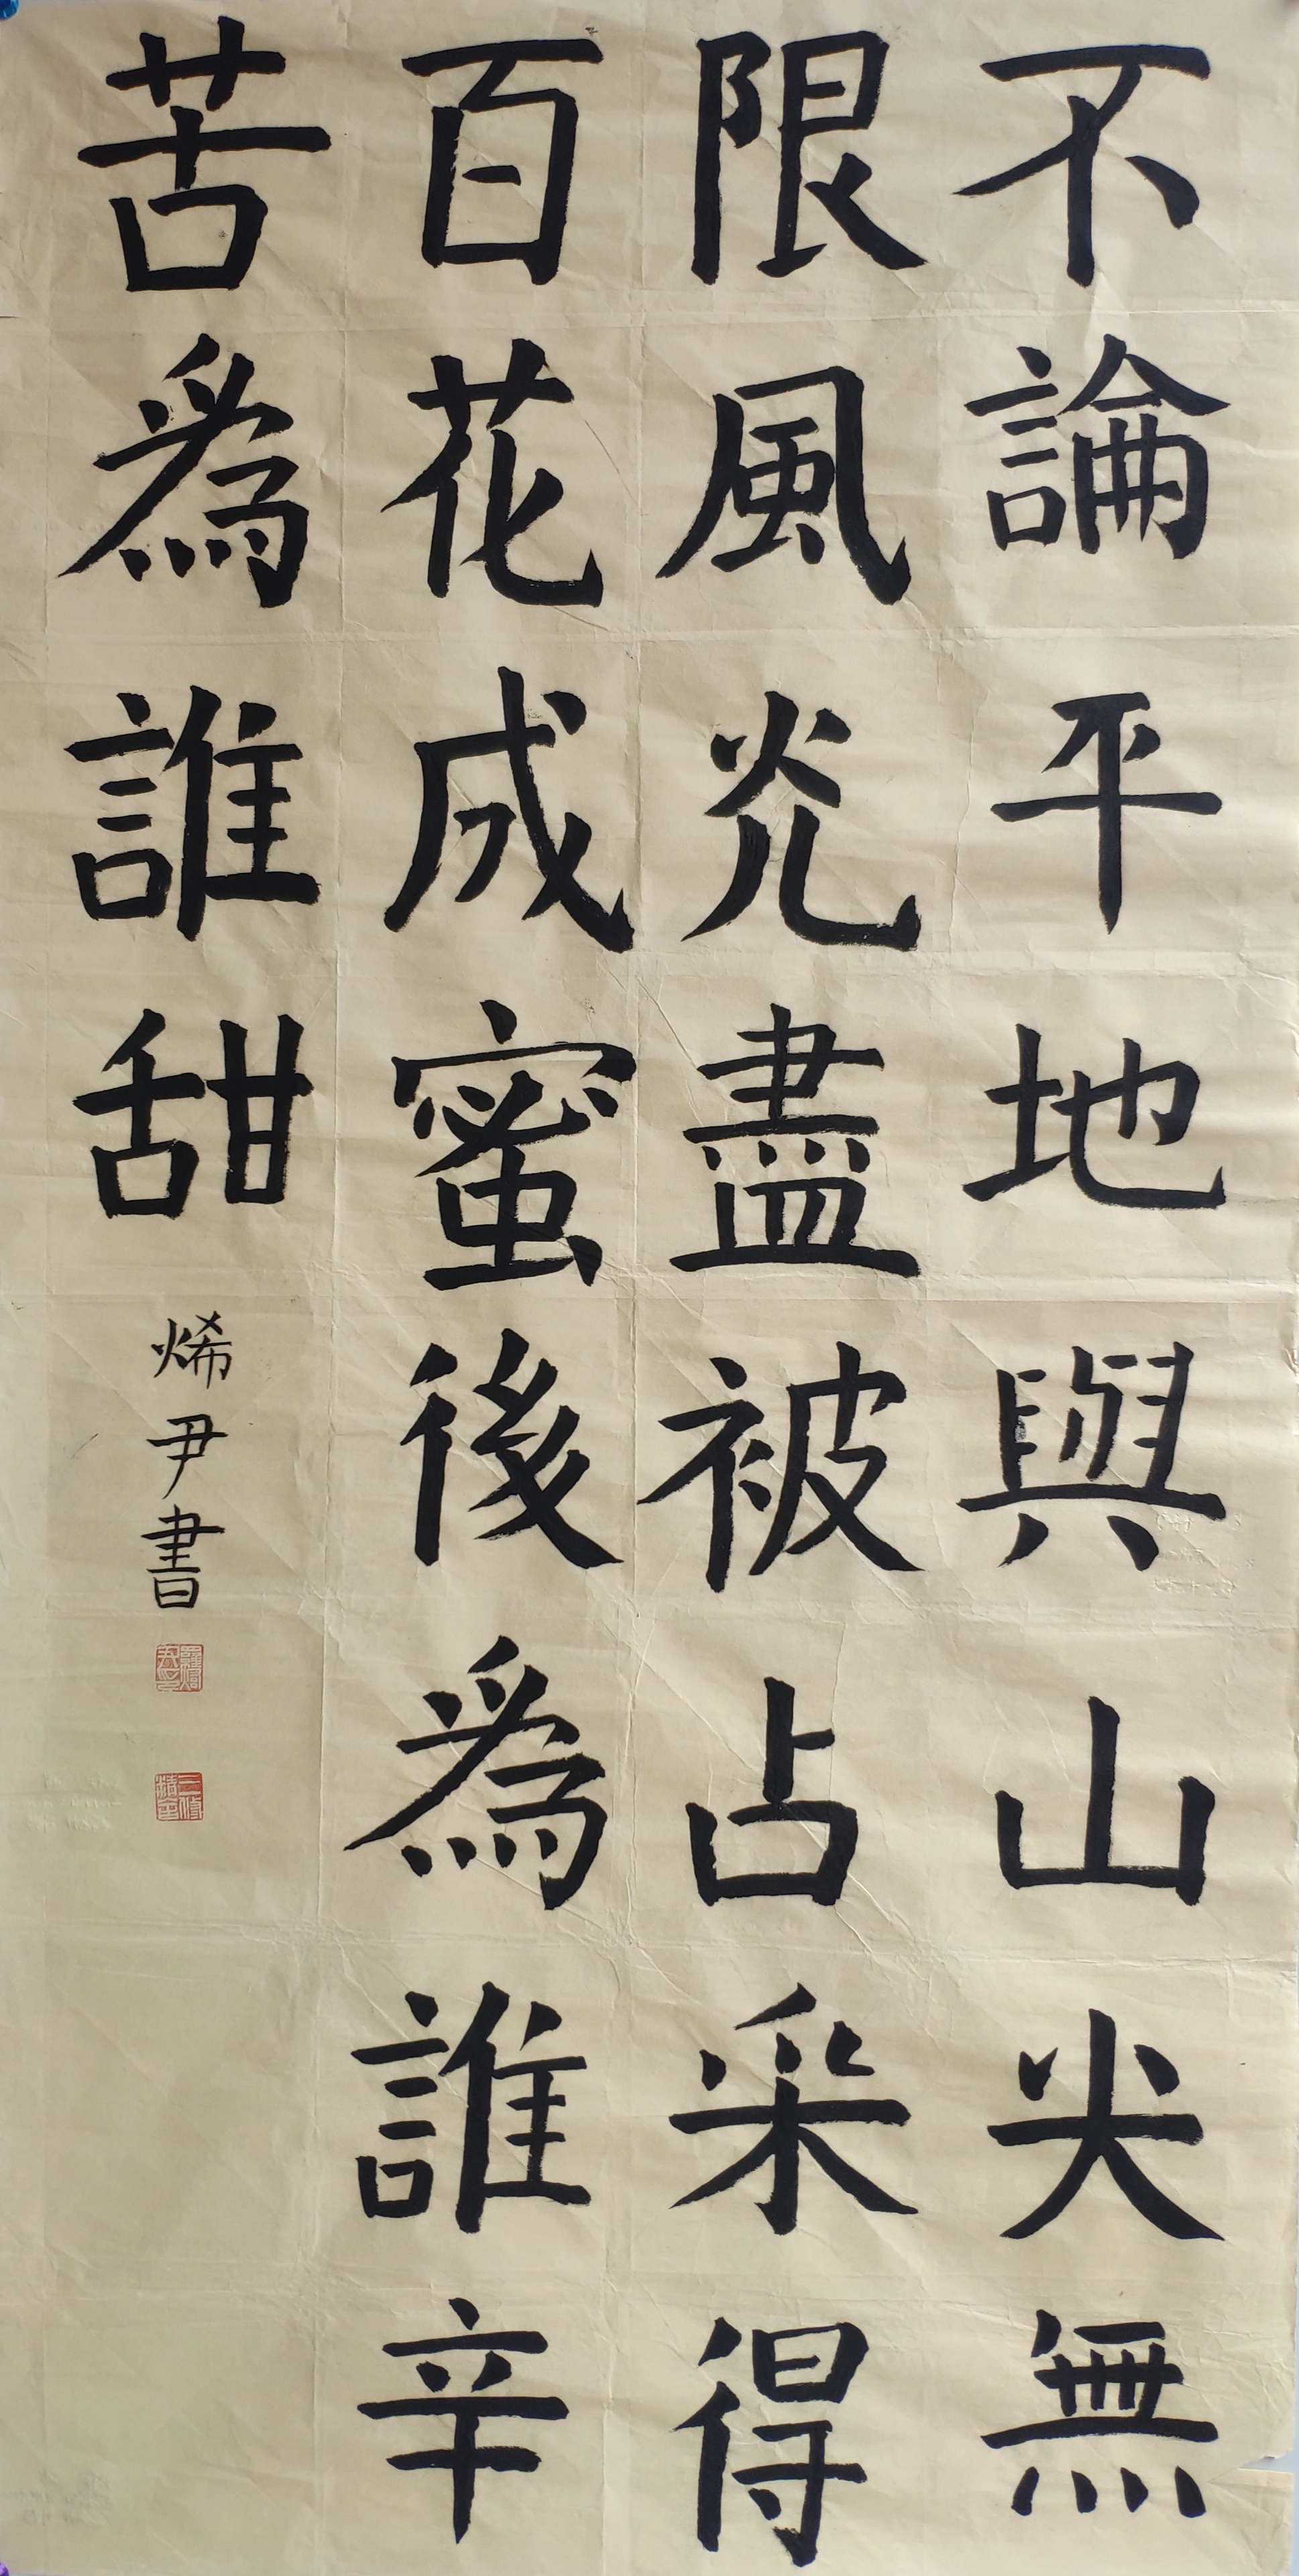 不論平地與山尖無
限風光盡被占采得
百花成蜜後為誰辛
苦為誰甜
烯尹書